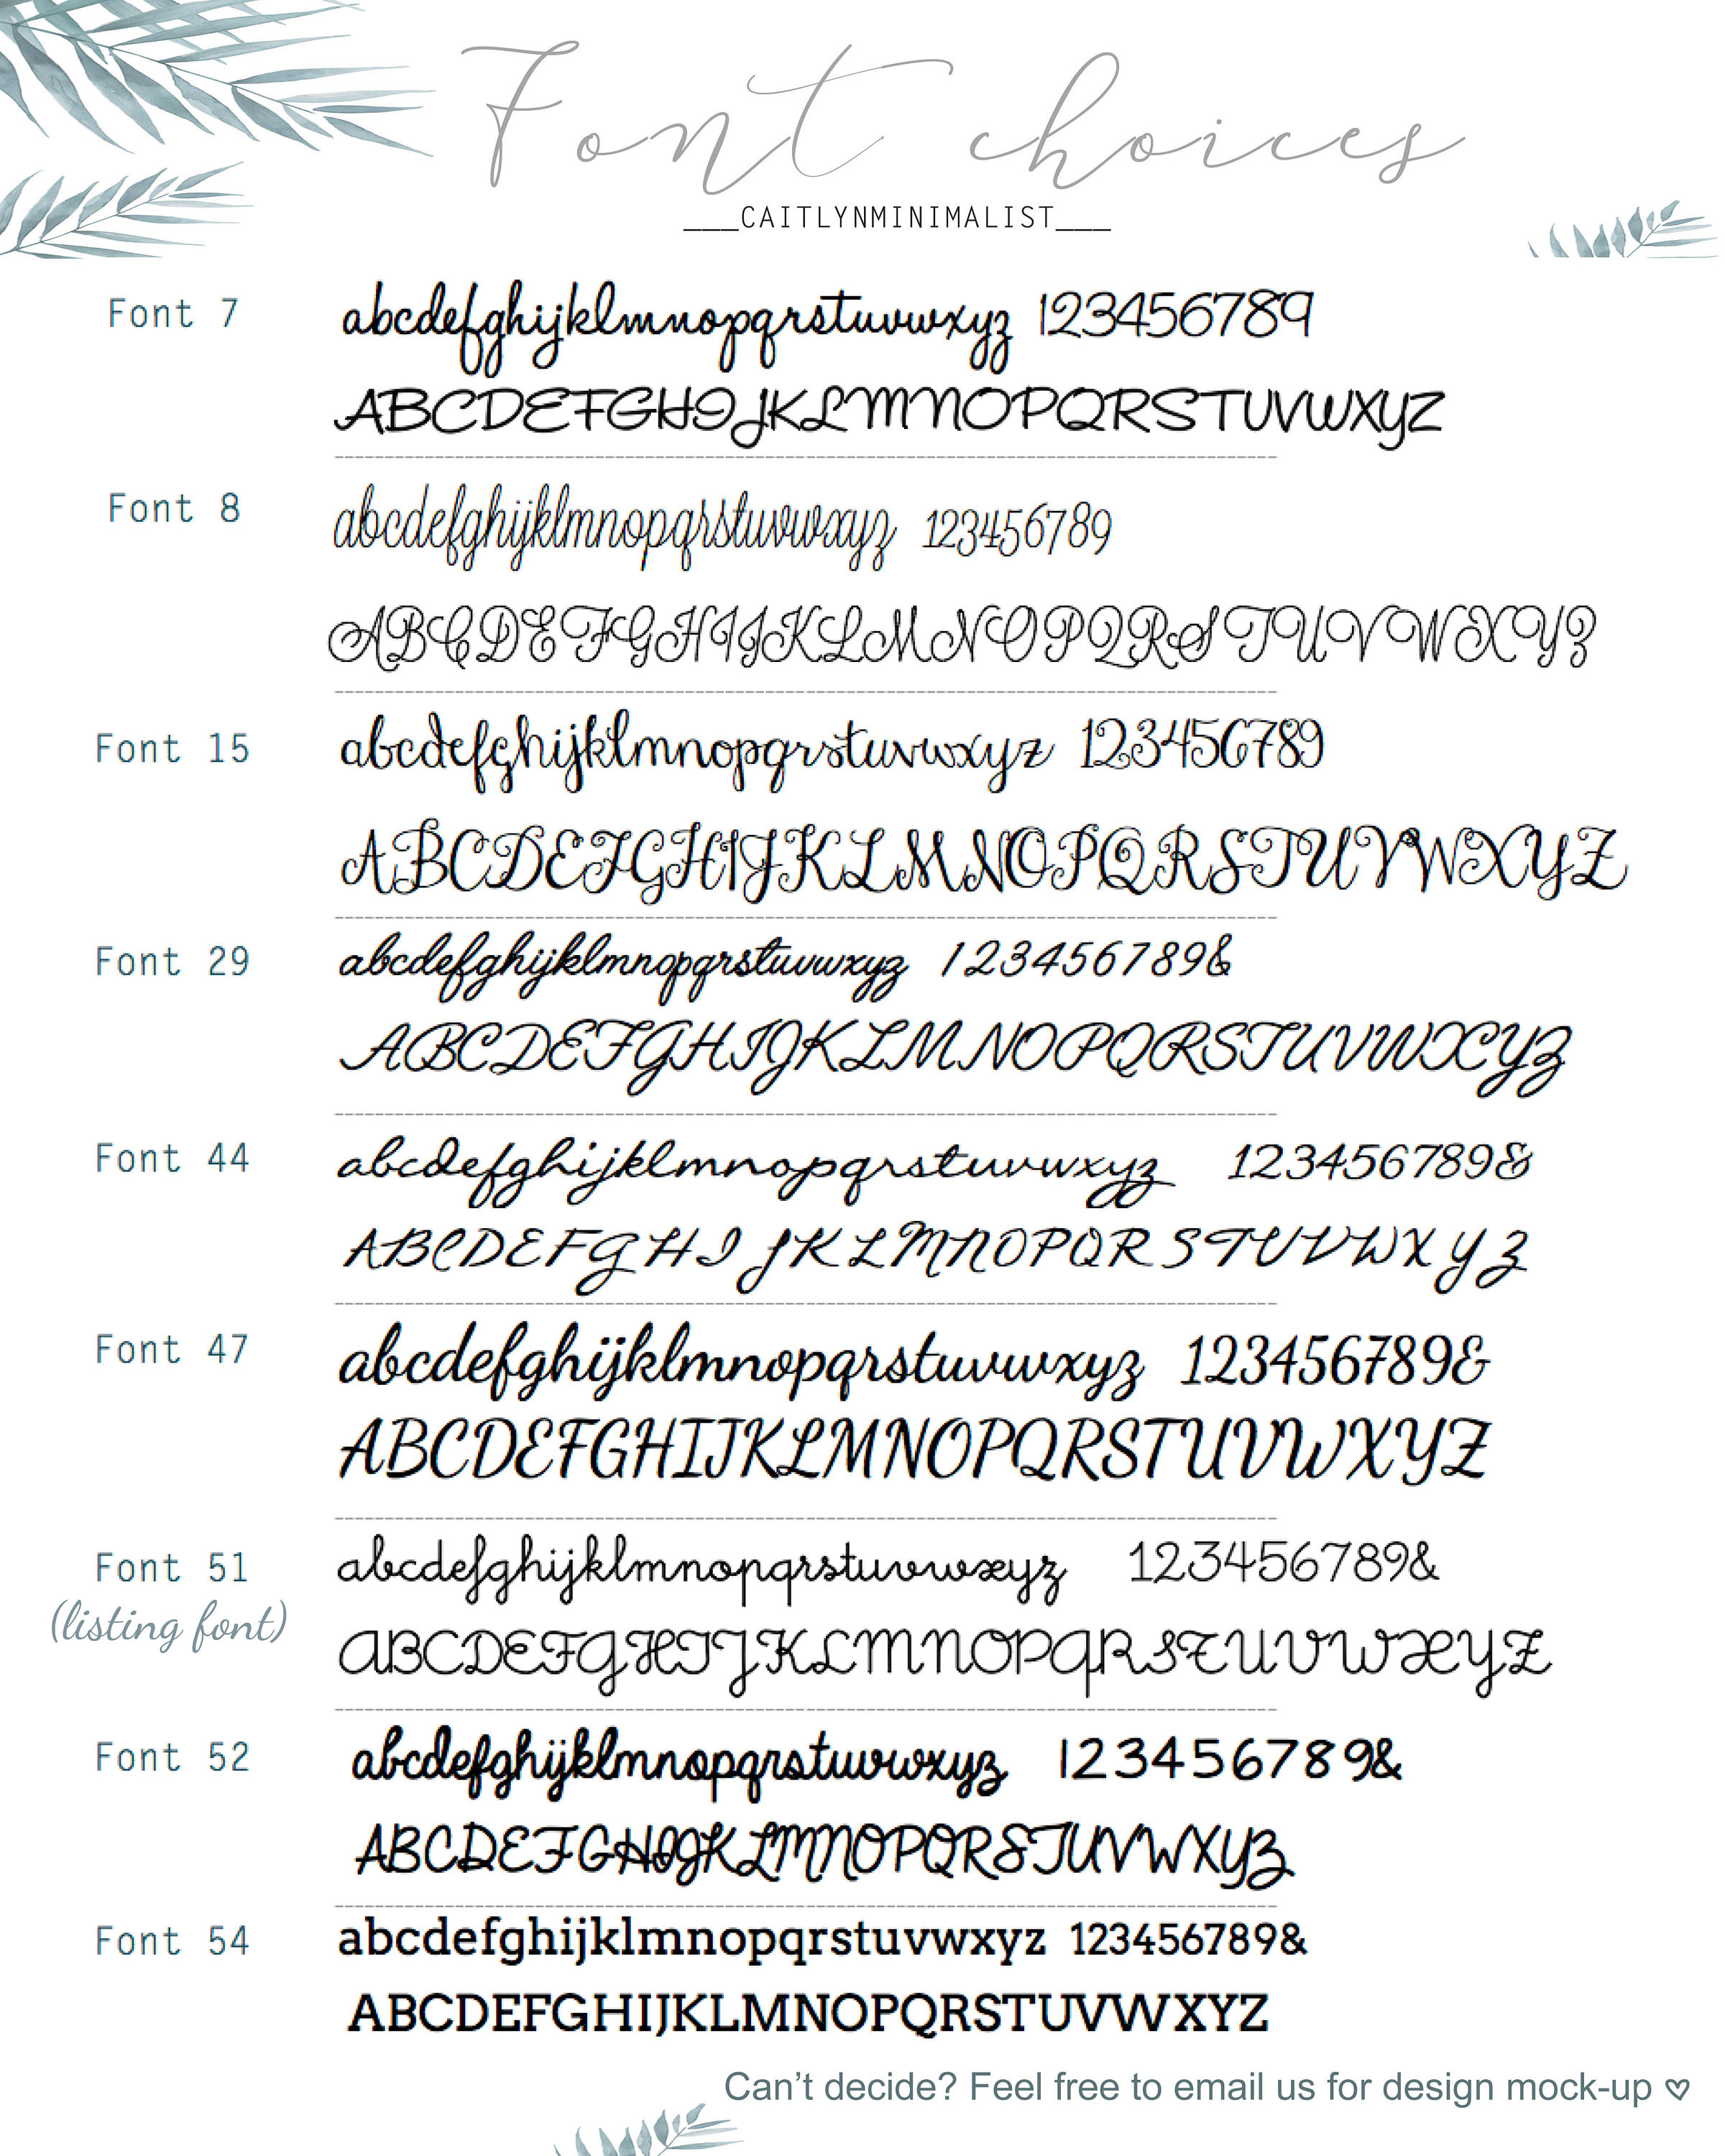 Font choices
___CAITLYNMINIMALIST___
Font 7 abcdefghijklmnopqrstuvwxyz 123456789
ABCDEFGHIJKLMNOPQRSTUVWXYZ
Font 8 abcdefghijklmnopqrstuvwxyz 123456789
ABCDEFGHIJKLMNOPQRSTUVWXYZ
Font 15 abcdefghijklmnopqrstuvwxyz 123456789
ABCDEFGHIJKLMNOPQRSTUVWXYZ
Font 29 abcdefghijklmnopqrstuvwxyz 123456789&
ABCDEFGHIJKLMNOPQRSTUVWXYZ
Font 44 abcdefghijklmnopqrstuvwxyz 123456789&
ABCDEFGHIJKLMNOPQRSTUVWXYZ
Font 47 abcdefghijklmnopqrstuvwxyz 123456789&
ABCDEFGHIJKLMNOPQRSTUVWXYZ
Font 51 abcdefghijklmnopqrstuvwxyz 123456789&
(listing font)
ABCDEFGHIJKLMNOPQRSTUVWXYZ
Font 52 abcdefghijklmnopqrstuvwxyz 123456789&
ABCDEFGHIJKLMNOPQRSTUVWXYZ
Font 54 abcdefghijklmnopqrstuvwxyz 123456789&
ABCDEFGHIJKLMNOPQRSTUVWXYZ
Can’t decide? Feel free to email us for design mock-up ♡